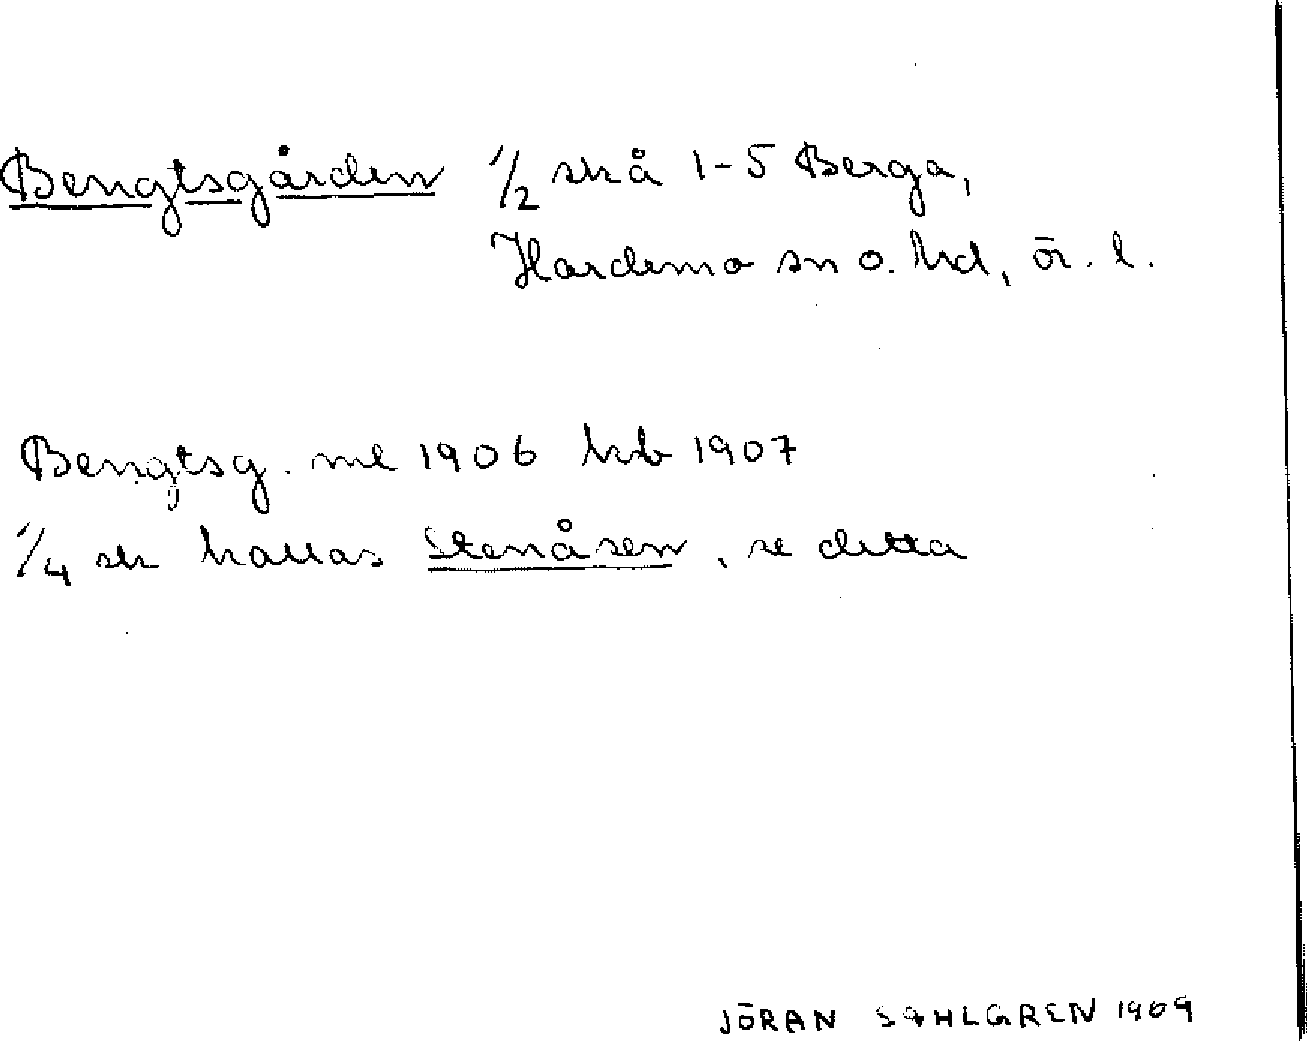 Bengtsgården 1/2 sk å 1-5 Berga,
Hardemo sn o. hd, ör. l.
Bengtsg. ml 1906 hrb 1907
1/4 sk kallas Stenåsen, se detta
JÖRAN SAHLGREN 1909